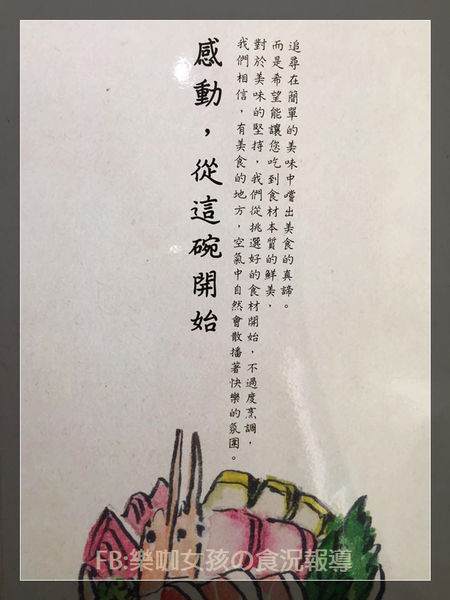 感動，從這碗開始
我們相信，有美食的地方，空氣中自然會散播著快樂的氛圍。
對於美味的堅持，我們從挑選好的食材開始，不過度烹調，
而是希望能讓您吃到食材本質的鮮美，
追尋在簡單的美味中嚐出美食的真諦。
FB:樂咖女孩の食況報導